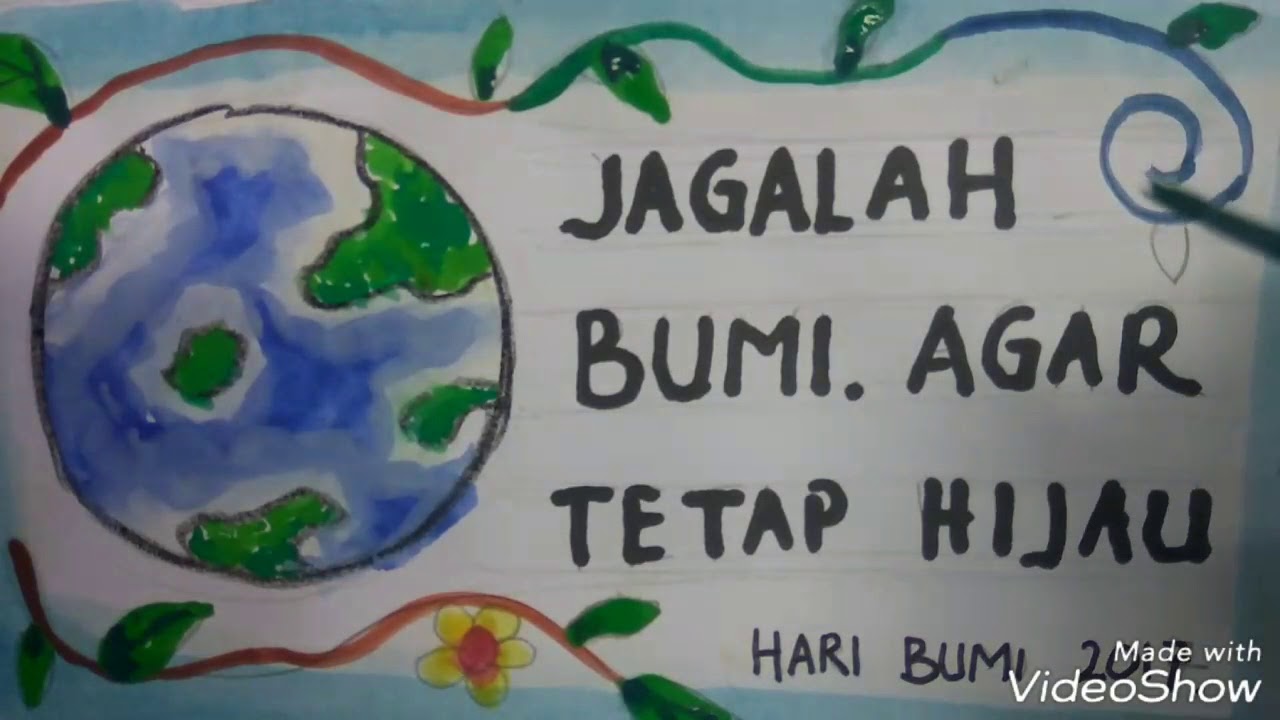 JAGALAH
BUMI. AGAR
TETAP HIJAU
HARI BUMI 2017
Made with
VideoShow